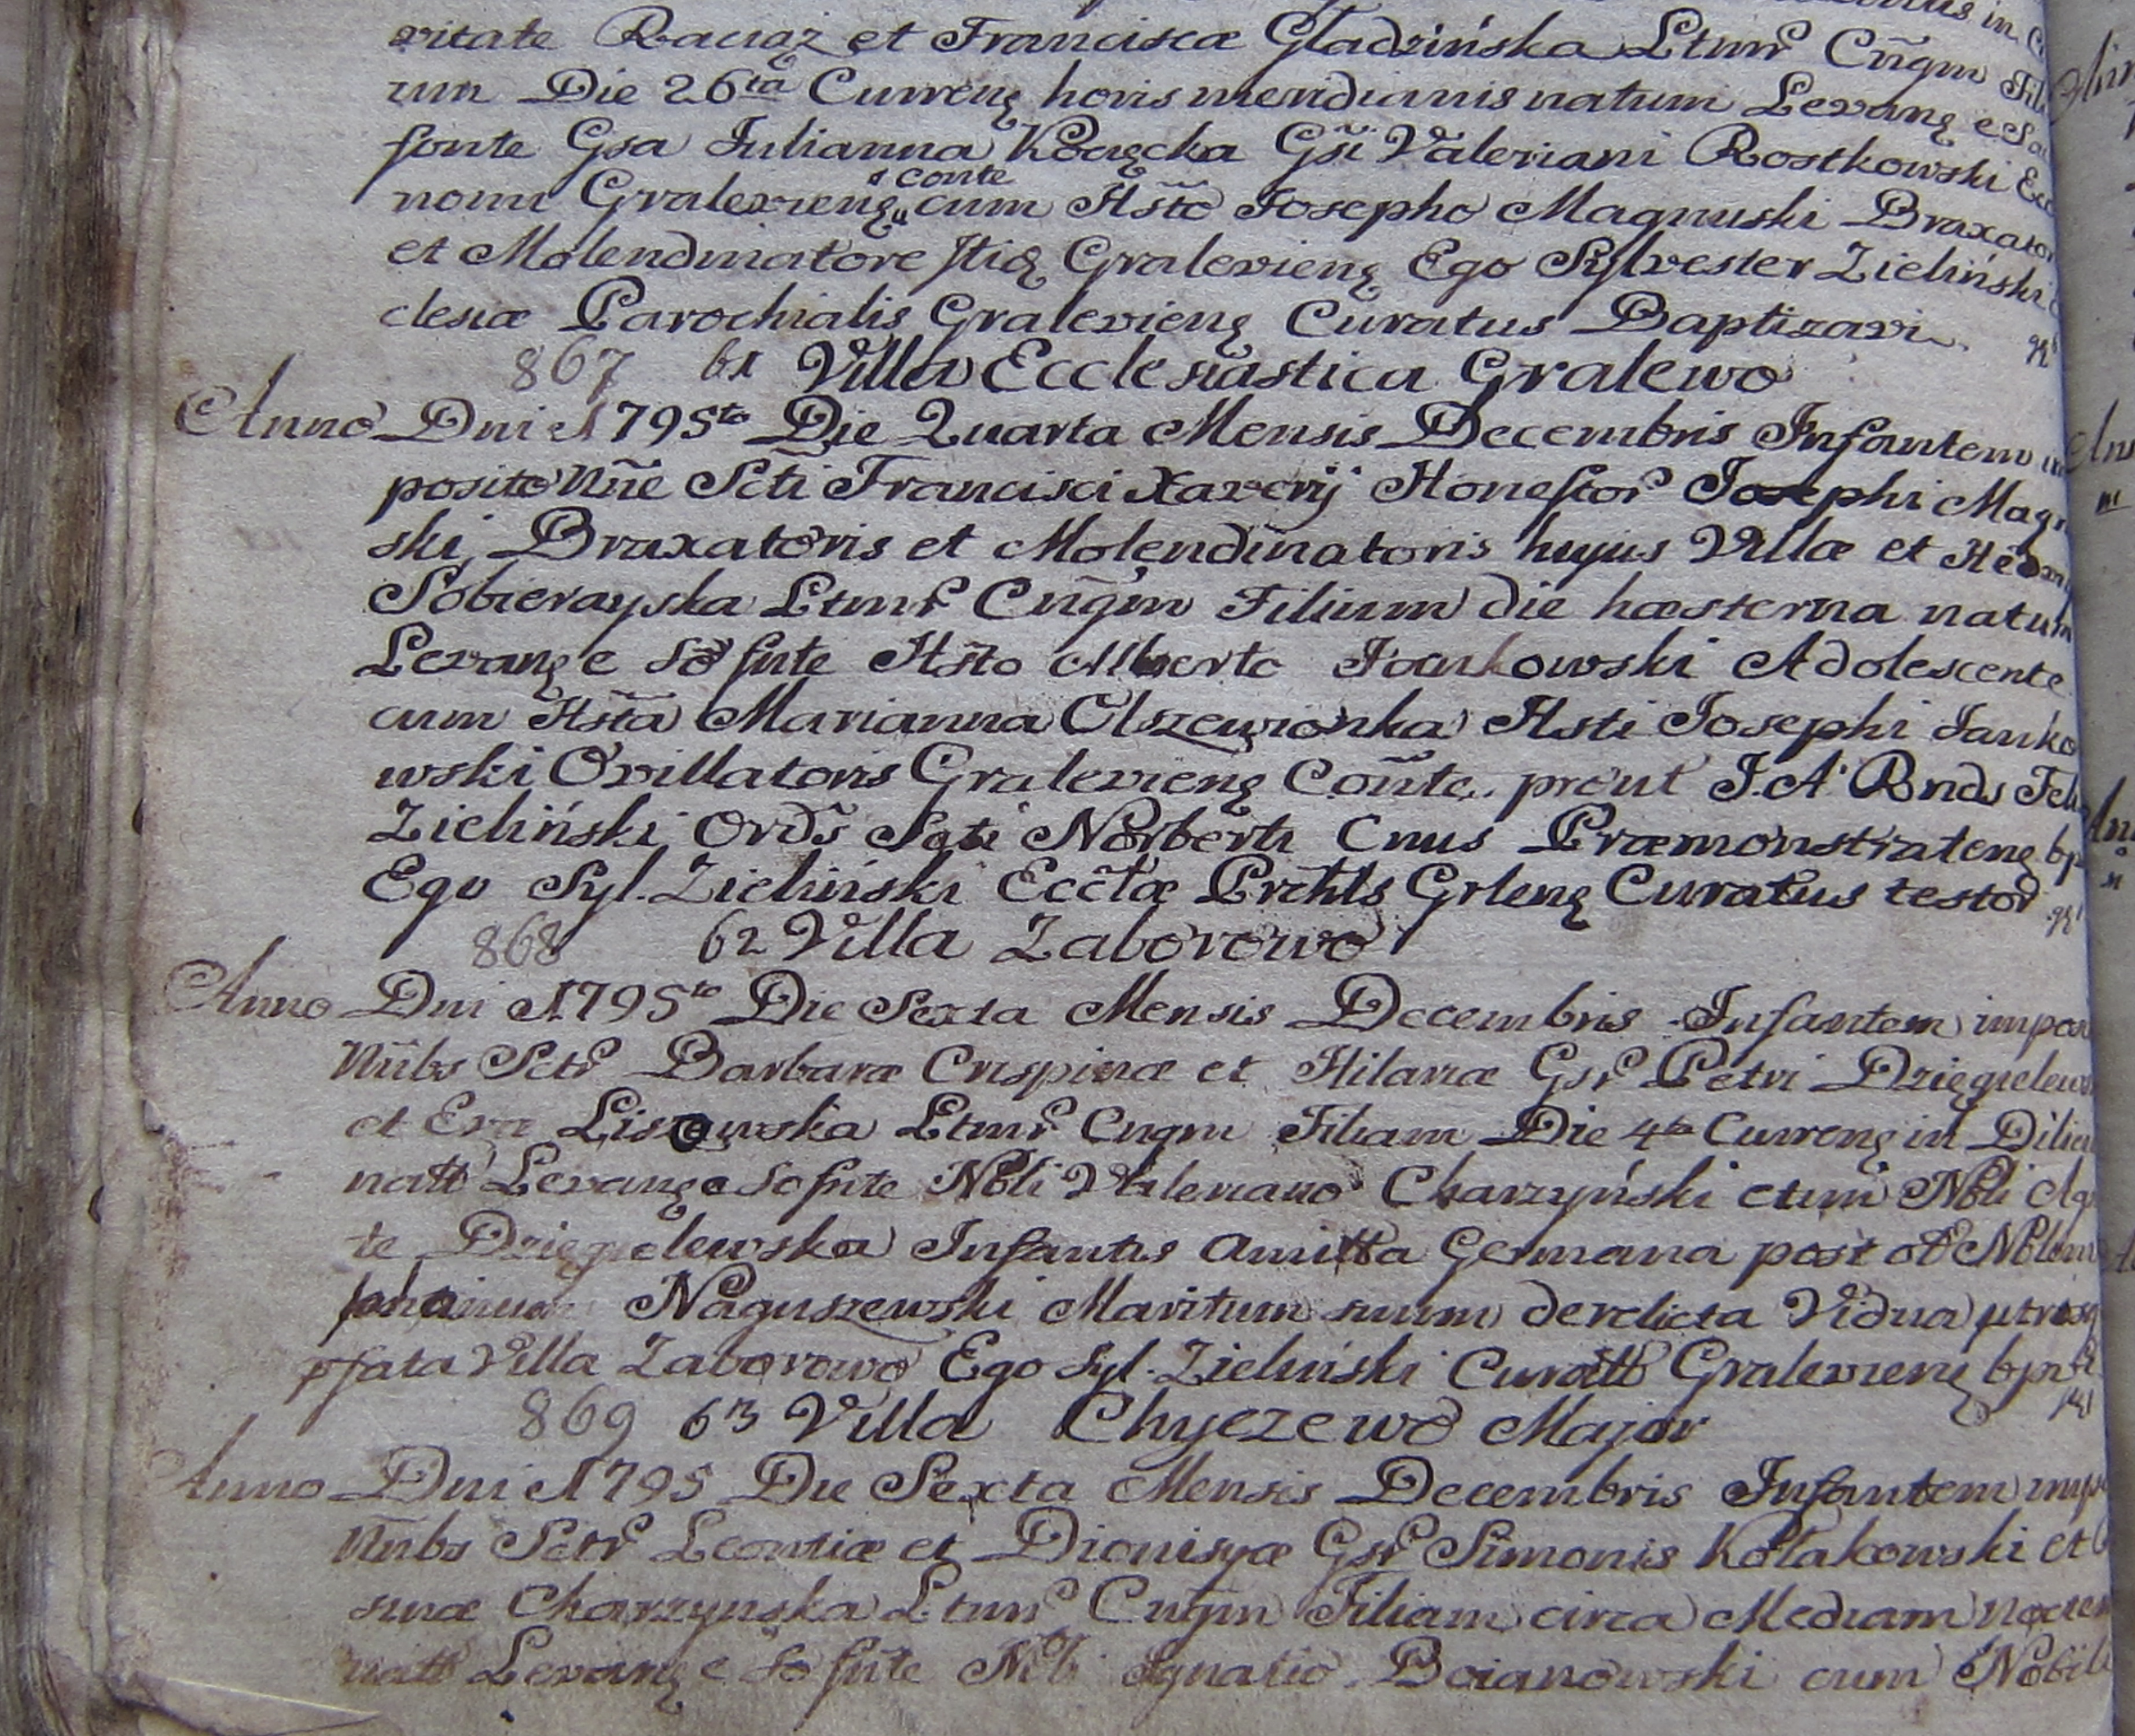 vitate Raciąż et Francisca Gładzińska Ltmr Cngm Fili
um Die 26ta Curreng horis meridianis natum Levang e Sa
fonte Gsa Julianna Kocięcka Gsi Valeriani Rostkowski Eco
nomi Gralevieng conte cum Hsto Josepho Magnuski Braxator
et Molendinatore Gralevieng Ego Sylvester Zieliński
clesiæ Parochialis Gralevieng Curatus Baptizavi
867 61 Villa Ecclesiastica Gralewo
Anno Dni 1795to Die Quarta Mensis Decembris Infantem im
posito Nne Scti Francisci Xaverij Honestor Josephi Magn
ski Braxatoris et Molendinatoris hujus Villæ et Hedvi
Sobierayska Ltmr Cngm Filium die hæsterna natum
Levang e So fnte Hsto Alberto Jankowski Adolescente
cum Hsta Marianna Olszewionka Hsti Josephi Janko
wski Ovillatoris Gralevieng Conte prout J. A Rnds Feli
Zieliński Ords Scti Norberti Cnus Præmonstrateng bp
Ego Syl. Zieliński Ecclæ Prchls Grleng Curatus testor
868 62 Villa Zaborowo
Anno Dni 1795to Die Sexta Mensis Decembris Infantem impos
Nnbs Sctr Barbaræ Crispinæ et Hilariæ Gsr Petri Dzięgielew
et Eva Lisowska Ltmr Cngm Filiam Die 4ta Curreng in Dilic
natt Levang e So fnte Nbli Valeriano Charzyński cum Nbli Aga
te Dziegielewska Infantis Amitta Germana post ob Nblem
Naguszewski Maritum suum derelicta Vidua utrisq
pfata Villa Zaborowo Ego Syl. Zieliński Curatt Gralevieng bpt
869 63 Villa Chyczewo Major
Anno Dni 1795 Die Sexta Mensis Decembris Infantem imps
Nnbs Sctr Leontiæ et Dionisyæ Gsr Simonis Kołakowski et
sinæ Charzynska Ltmr Cngm Filiam circa Mediam nocte
natt Levang e So fnte Nbli Ignatio Boianowski cum Nobili